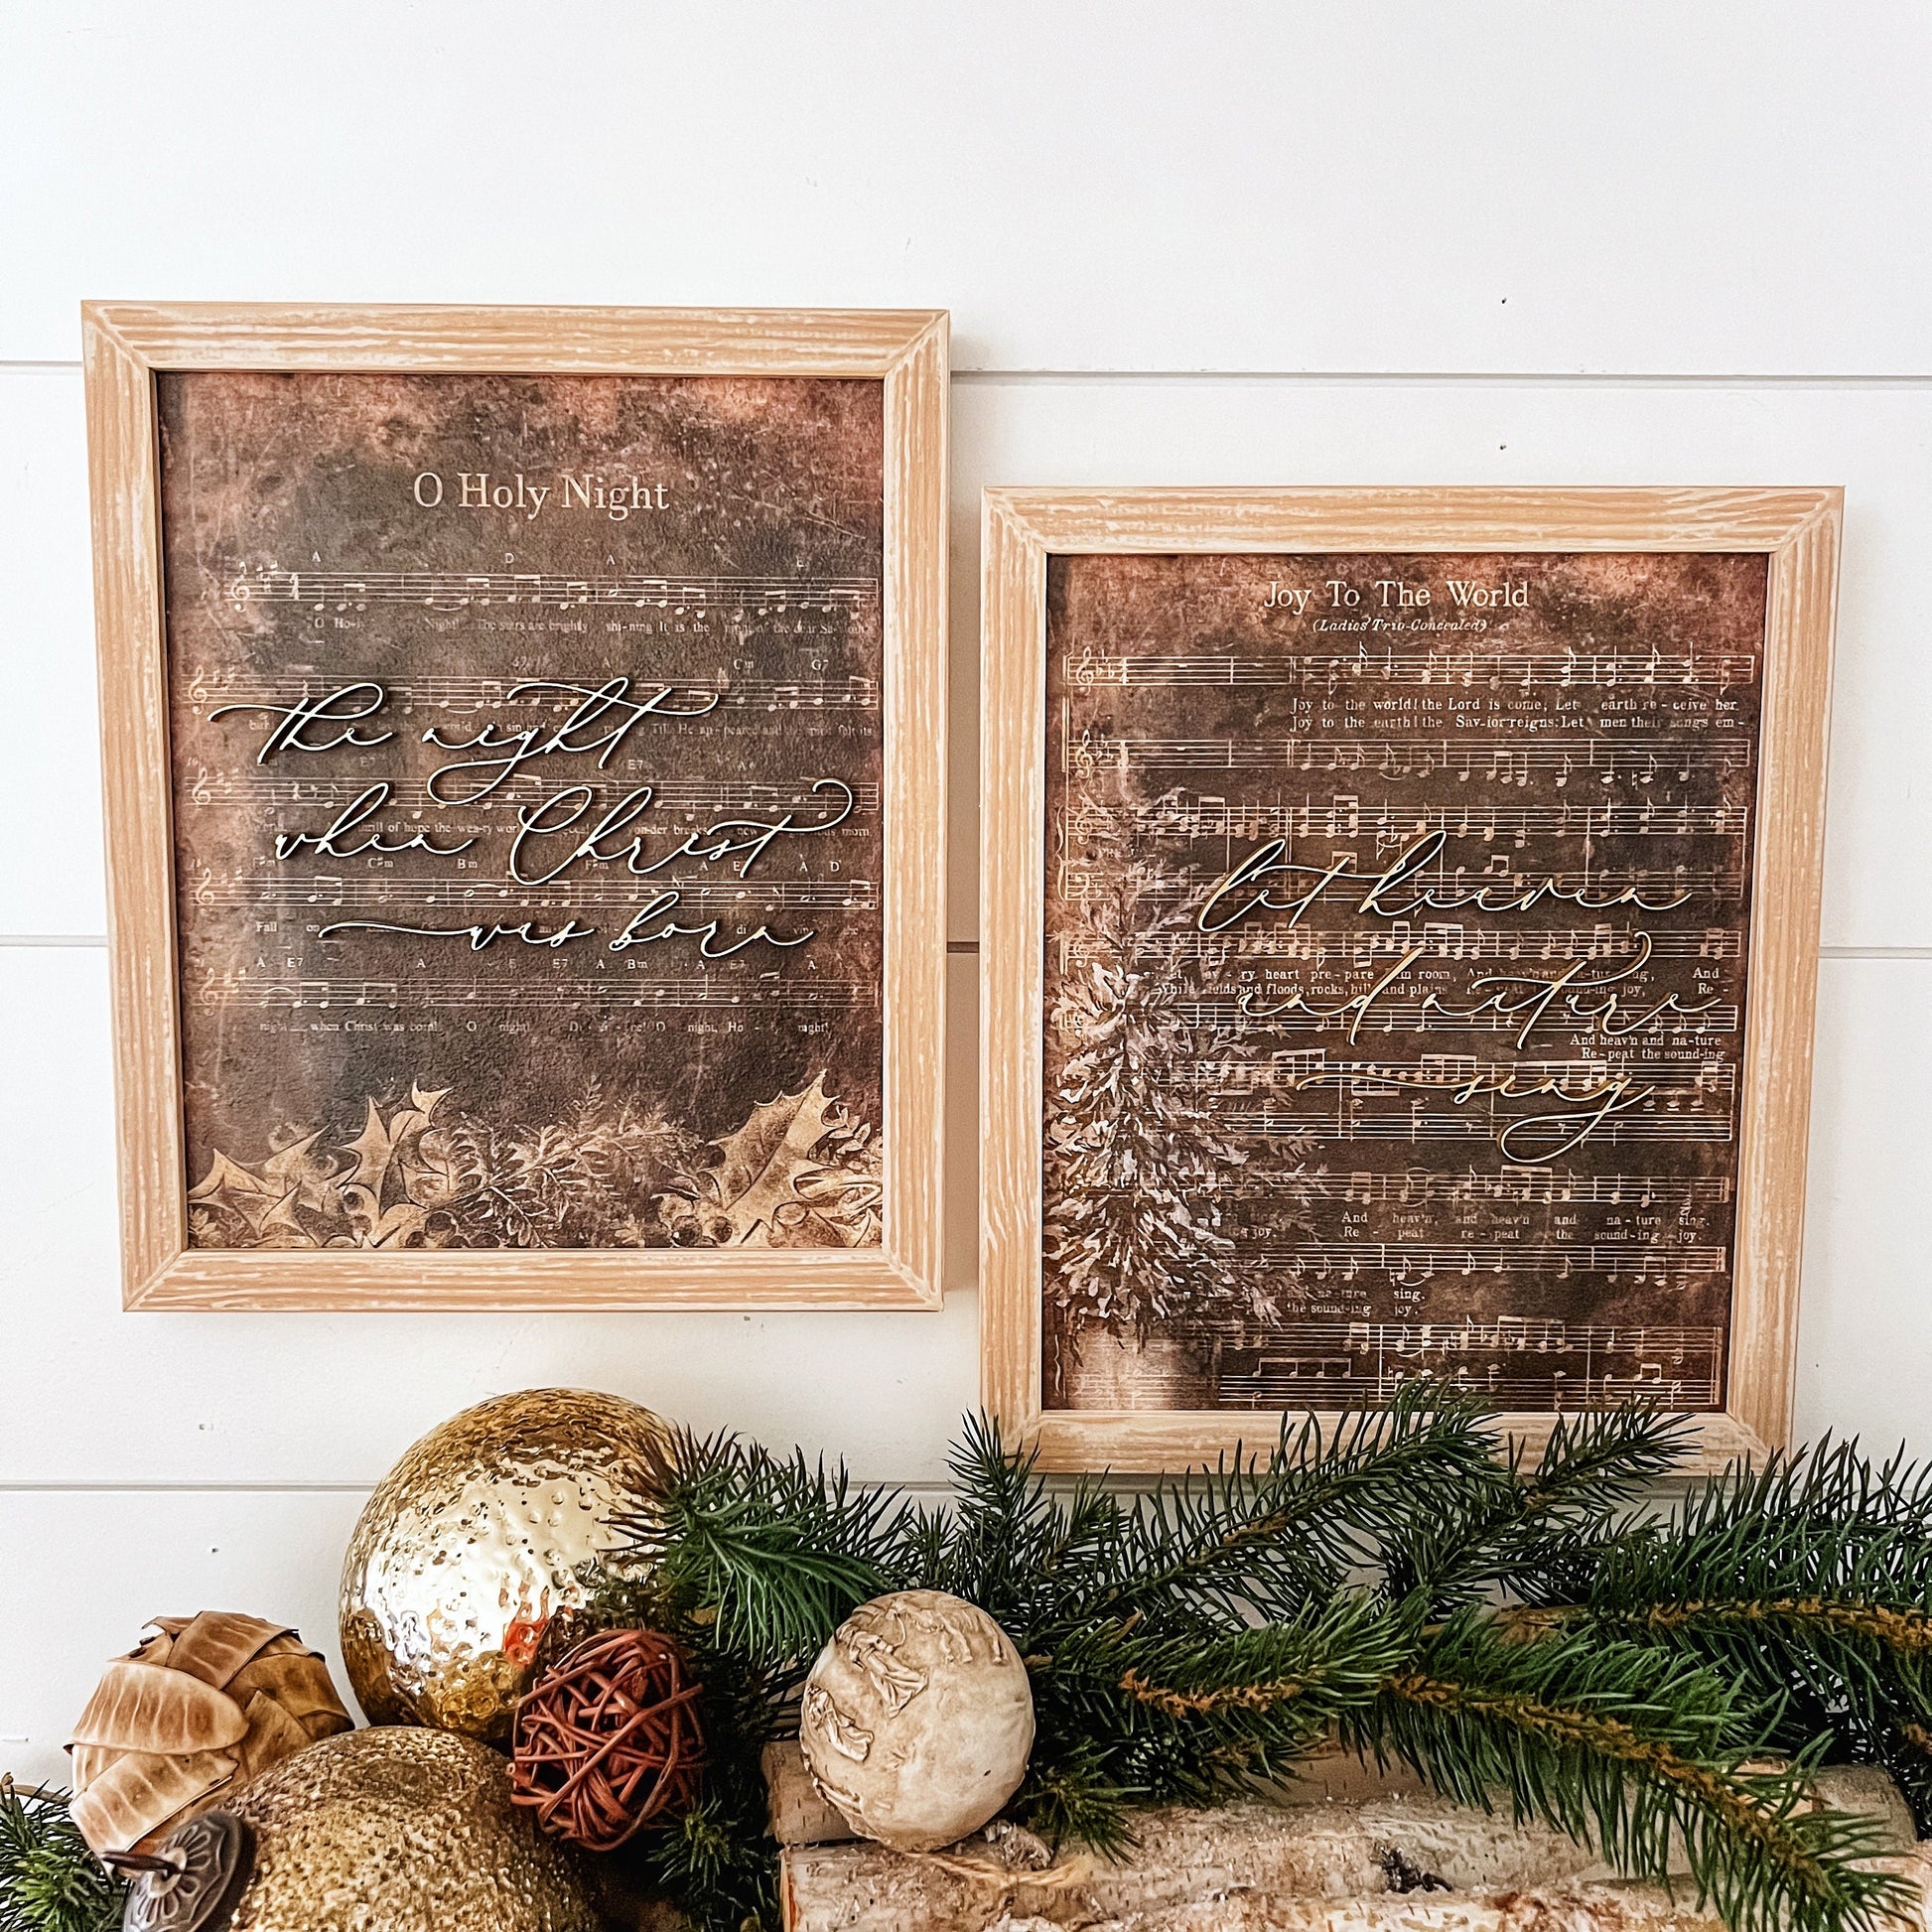 O Holy Night
A D A E
O Ho-ly Night! The stars are brightly shi-ning It is the night of the dear Sa-
A Cm G7
the night
Till He ap-peared and the felt its
E7
when Christ
thrill of hope the wea-ry wor onder breaks new ous morn,
F#m C#m Bm F#m A E A D
was born
Fall on di vine
A E7 A E E7 A Bm A E7 A
night when Christ was born! O night Di ne! O night, Ho - night!
Joy To The World
(Ladies' Trio-Concealed)
Joy to the world! the Lord is come; Let earth re-ceive her
Joy to the earth! the Sav-ior reigns: Let men their songs em-
let heaven
ev-ry heart pre-pare him room, And heav'n and na-ture sing, And
While fields and floods, rocks, hills and plains Re-peat sound-ing joy, Re-
and nature
And heav'n and na-ture
Re-peat the sound-ing
sing
And heav'n, and heav'n and na-ture sing.
joy. Re-peat re-peat the sound-ing joy.
na-ture sing.
the sound-ing joy.